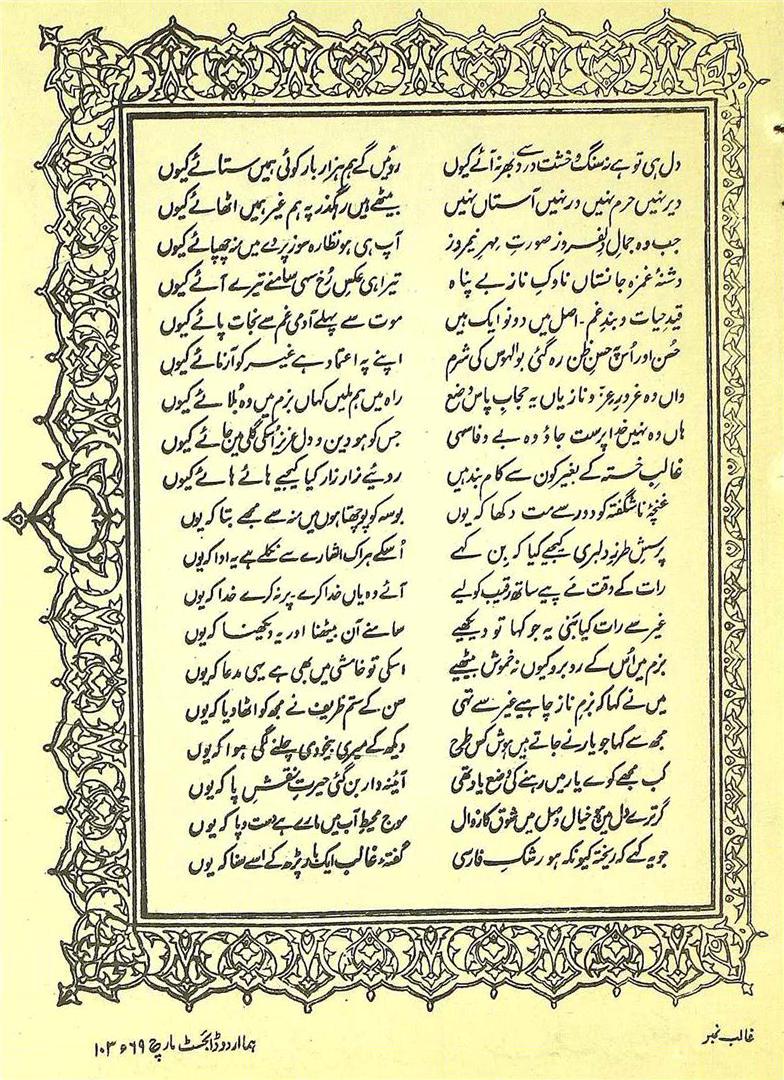 دل ہی تو ہے نہ سنگ و خشت درد سے بھر نہ آئے کیوں روئیں گے ہم ہزار بار کوئی ہمیں ستائے کیوں
دیر نہیں حرم نہیں در نہیں آستاں نہیں بیٹھے ہیں رہگذر پہ ہم غیر ہمیں اٹھائے کیوں
جب وہ جمالِ دلفروز صورتِ مہرِ نیمروز آپ ہی ہو نظارہ سوز پردے میں منہ چھپائے کیوں
دشنۂ غمزہ جانستاں ناوکِ ناز بے پناہ تیرا ہی عکسِ رُخ سہی سامنے تیرے آئے کیوں
قیدِ حیات و بندِ غم۔ اصل میں دونو ایک ہیں موت سے پہلے آدمی غم سے نجات پائے کیوں
حُسن اور اُس پہ حسنِ ظن رہ گئی بوالہوس کی شرم اپنے پہ اعتماد ہے غیر کو آزمائے کیوں
واں وہ غرورِ عزّ و ناز یاں یہ حجابِ پاسِ وضع راہ میں ہم ملیں کہاں بزم میں وہ بُلائے کیوں
ہاں وہ نہیں خدا پرست جاؤ وہ بے وفا سہی جس کو ہو دین و دل عزیز اُسکی گلی میں جائے کیوں
غالبِ خستہ کے بغیر کون سے کام بند ہیں روئیے زار زار کیا کیجیے ہائے ہائے کیوں
غنچۂ ناشگفتہ کو دور سے مت دکھا کہ یوں بوسہ کو پوچھتا ہوں میں منہ سے مجھے بتا کہ یوں
پرسشِ طرزِ دلبری کیجیے کیا کہ بِن کہے اُسکے ہر اک اشارے سے نکلے ہے یہ ادا کہ یوں
رات کے وقت مَے پیے ساتھ رقیب کو لیے آئے وہ یاں خدا کرے۔ پر نہ کرے خدا کہ یوں
غیر سے رات کیا بنی یہ جو کہا تو دیکھیے سامنے آن بیٹھنا اور یہ دیکھنا کہ یوں
بزم میں اُس کے روبرو کیوں نہ خموش بیٹھیے اسکی تو خامشی میں بھی ہے یہی مدعا کہ یوں
میں نے کہا کہ بزمِ ناز چاہیے غیر سے تہی سن کے ستم ظریف نے مجھ کو اٹھا دیا کہ یوں
مجھ سے کہا جو یار نے جاتے ہیں ہوش کس طرح دیکھ کے میری بیخودی چلنے لگی ہوا کہ یوں
کب مجھے کوے یار میں رہنے کی وضع یاد تھی آئینہ دار بن گئی حیرتِ نقشِ پا کہ یوں
گر ترے دل میں ہو خیال وصل میں شوق کا زوال موج محیطِ آب میں مارے ہے دست و پا کہ یوں
جو یہ کہے کہ ریختہ کیونکہ ہو رشکِ فارسی گفتۂ غالب ایک بار پڑھ کے اُسے سنا کہ یوں
غالب نمبر
ہما اردو ڈائجسٹ مارچ ۶۹ء ۱۰۳